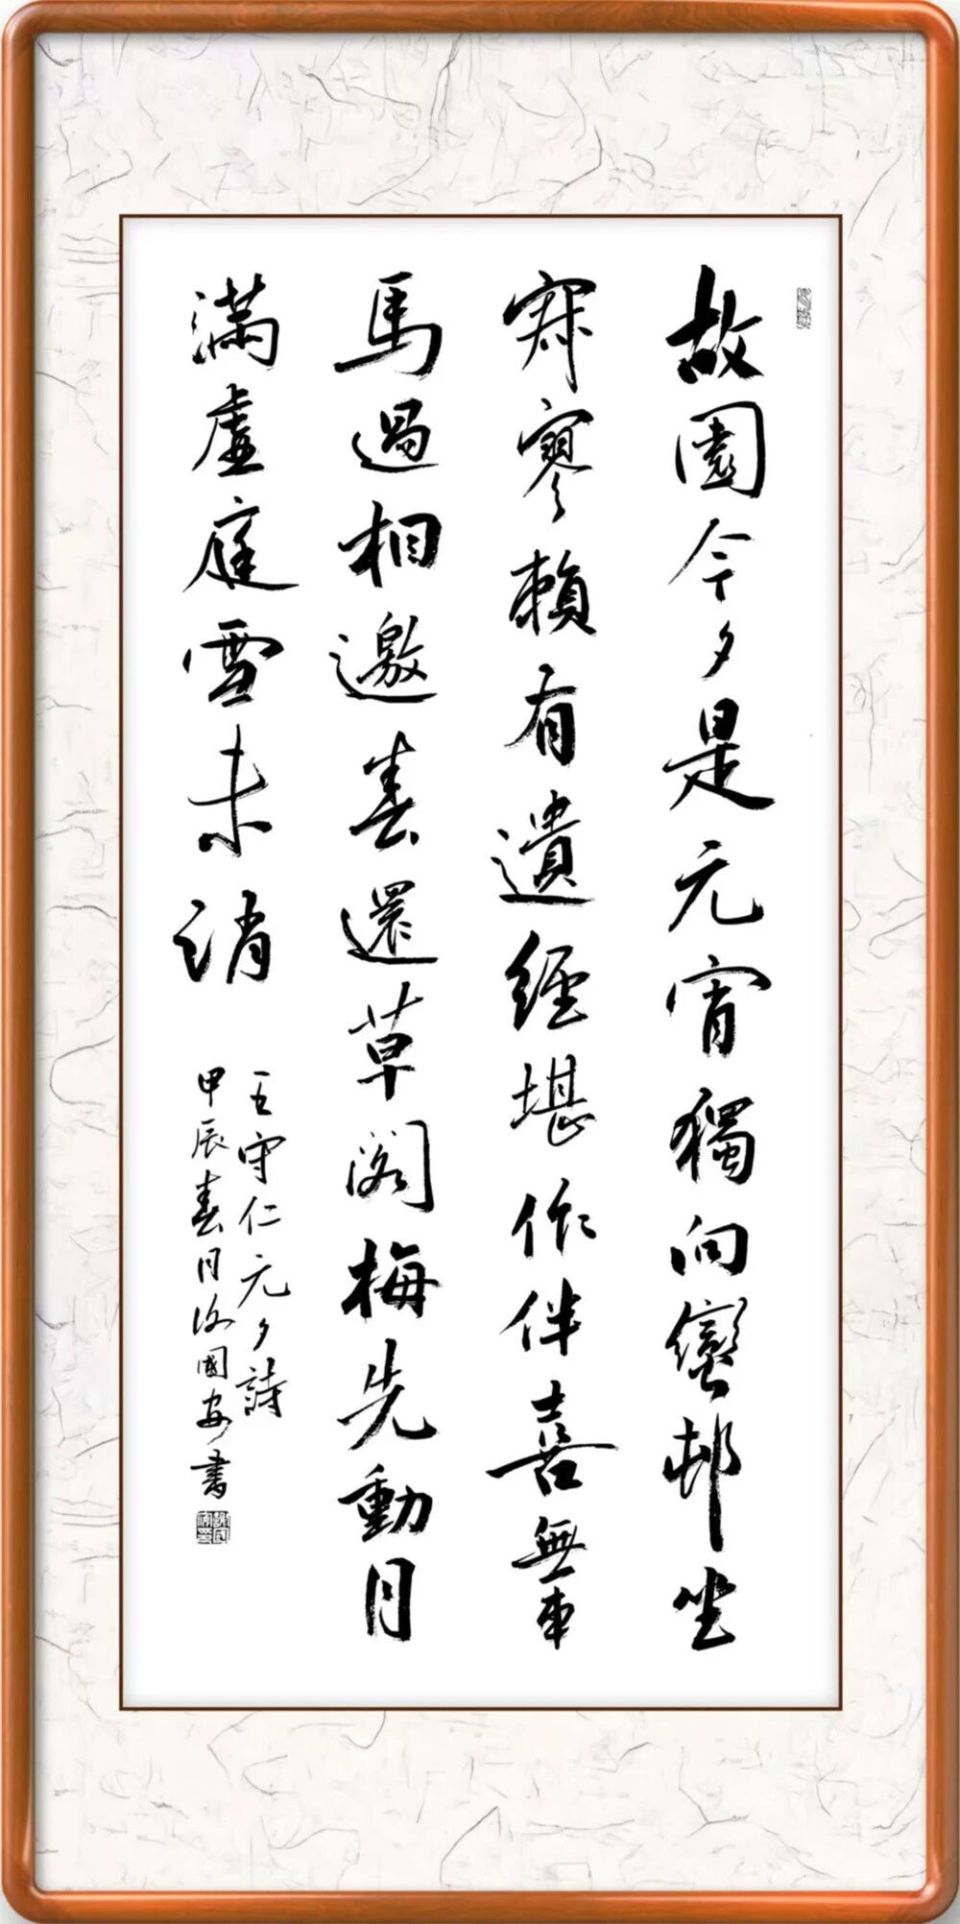 故園今夕是元宵獨向蠻邨坐
寂寥賴有遺經堪作伴喜無車
馬過相邀春還草閣梅先動月
滿虛庭雪未消
王守仁元夕詩
甲辰春月 國安書